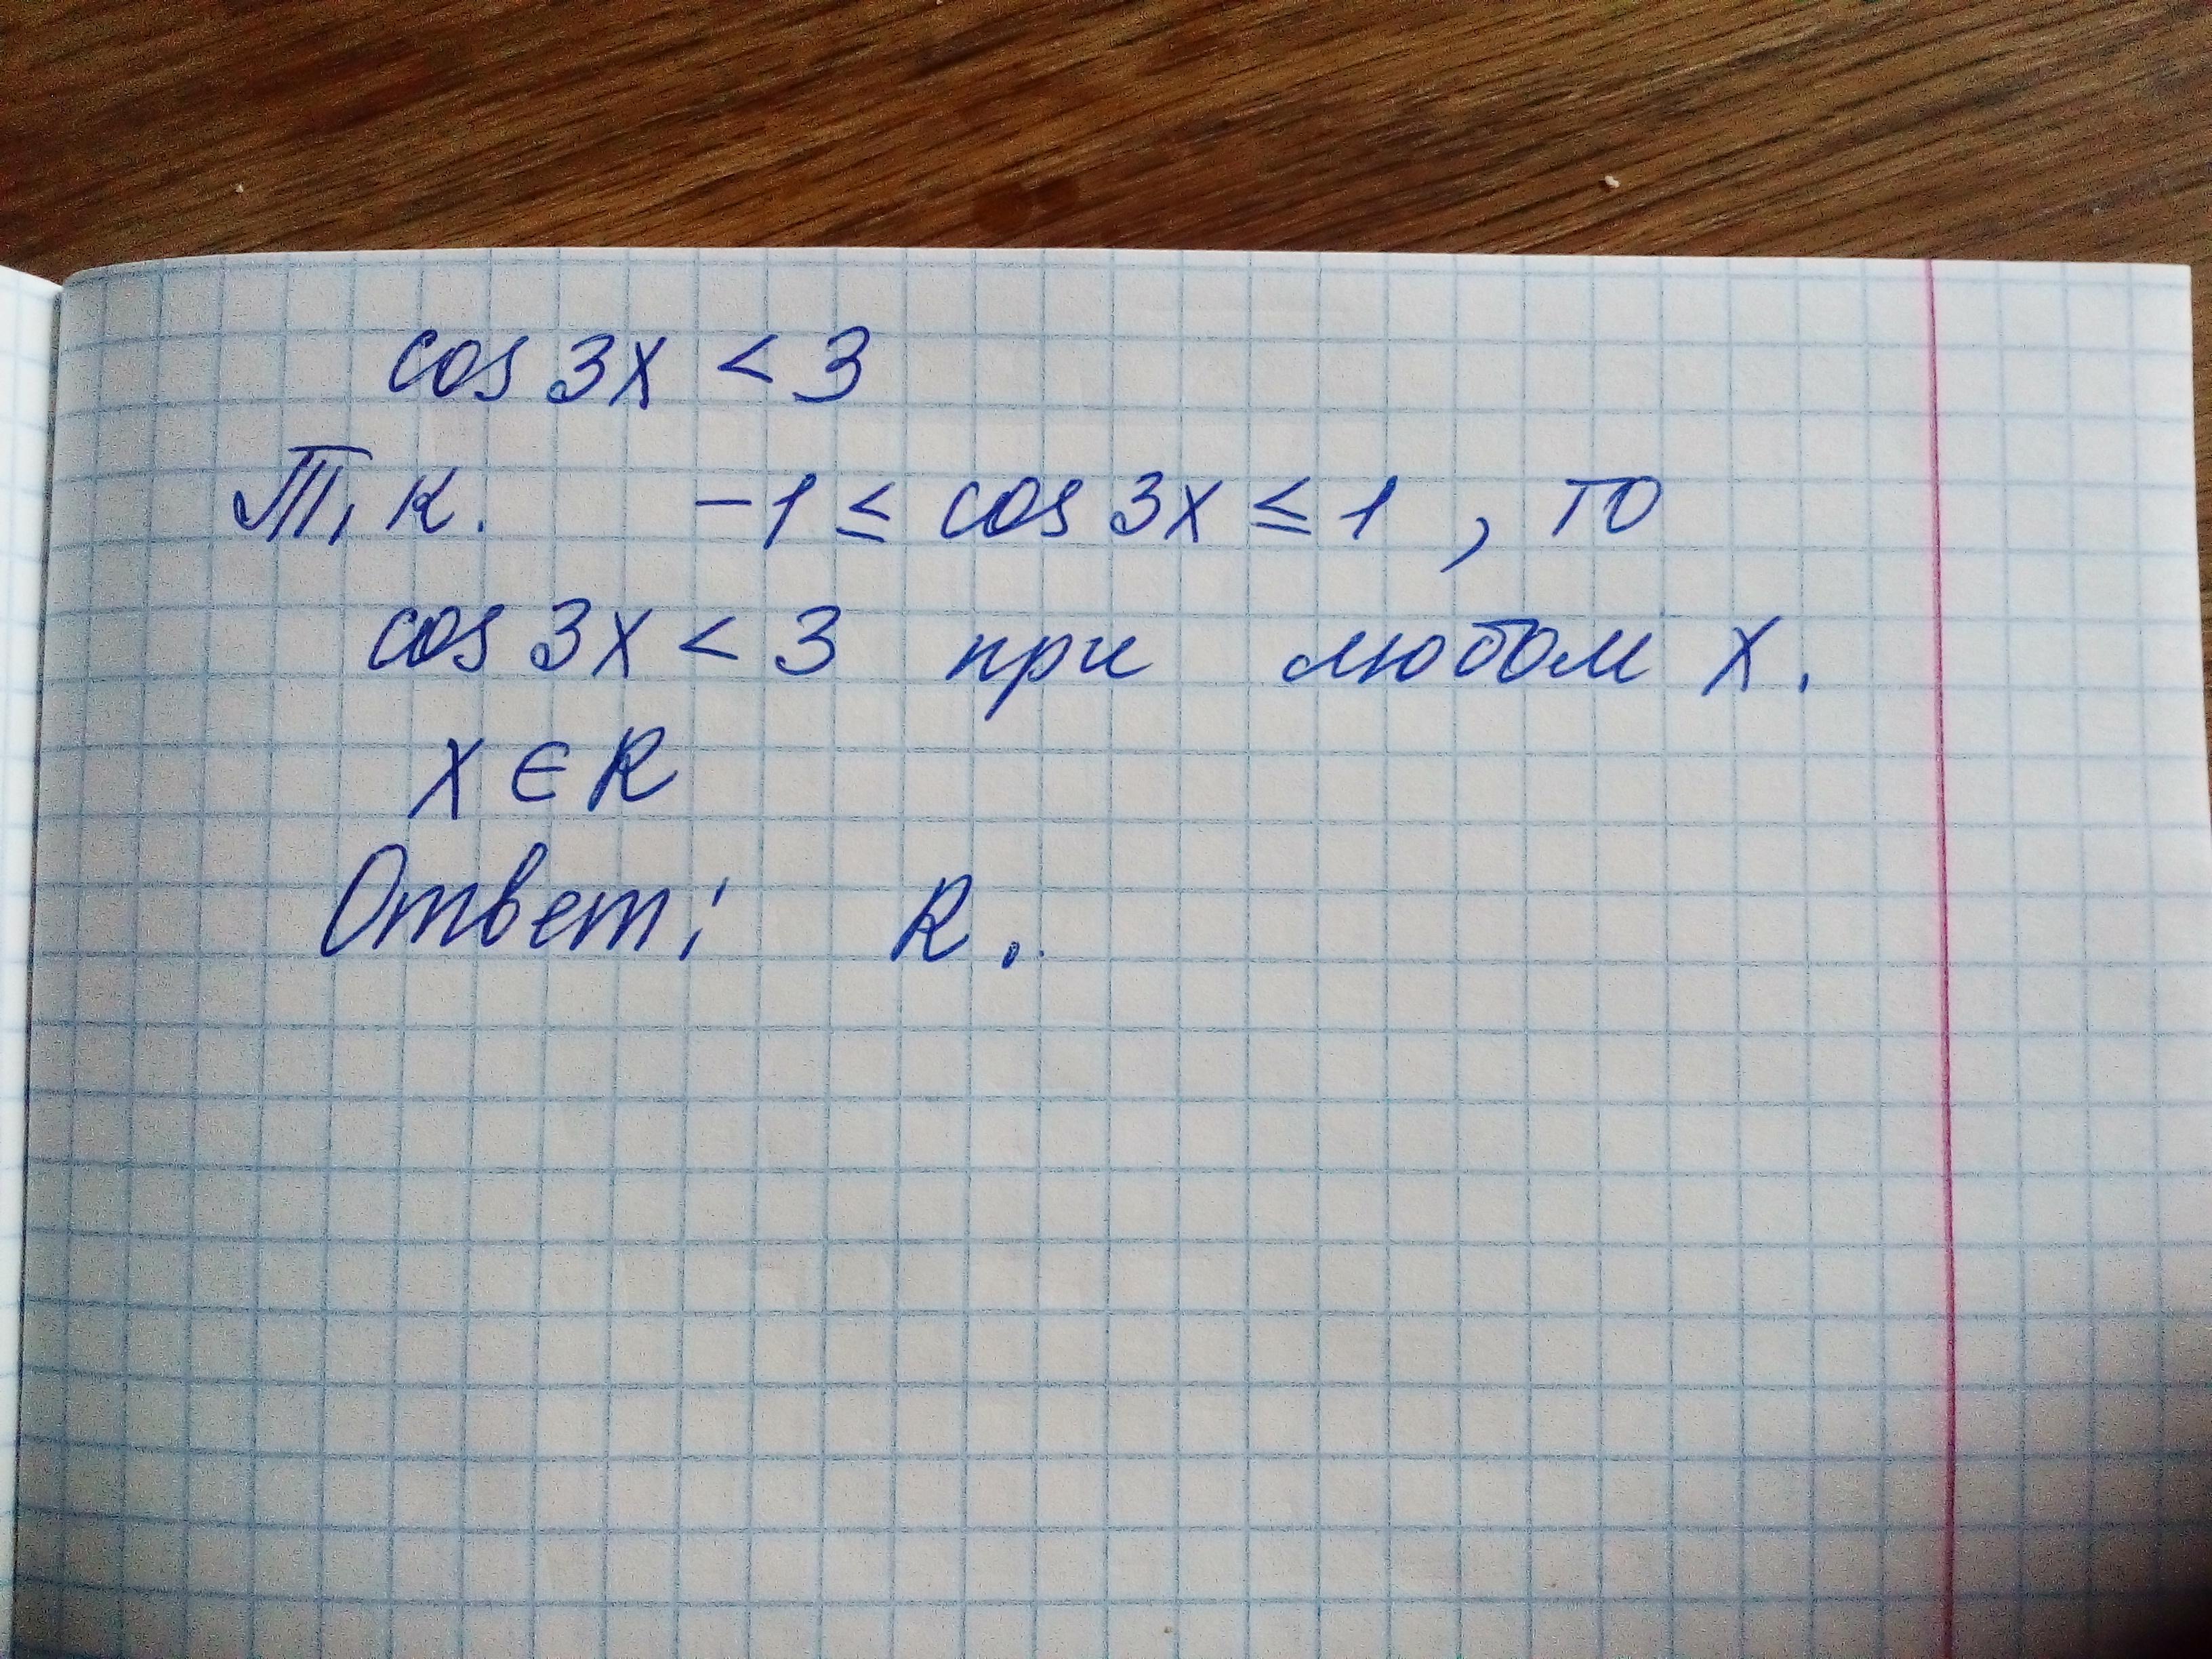 cos 3x < 3
Т. к. -1 ≤ cos 3x ≤ 1, то
cos 3x < 3 при любом x.
x ∈ R
Ответ: R.